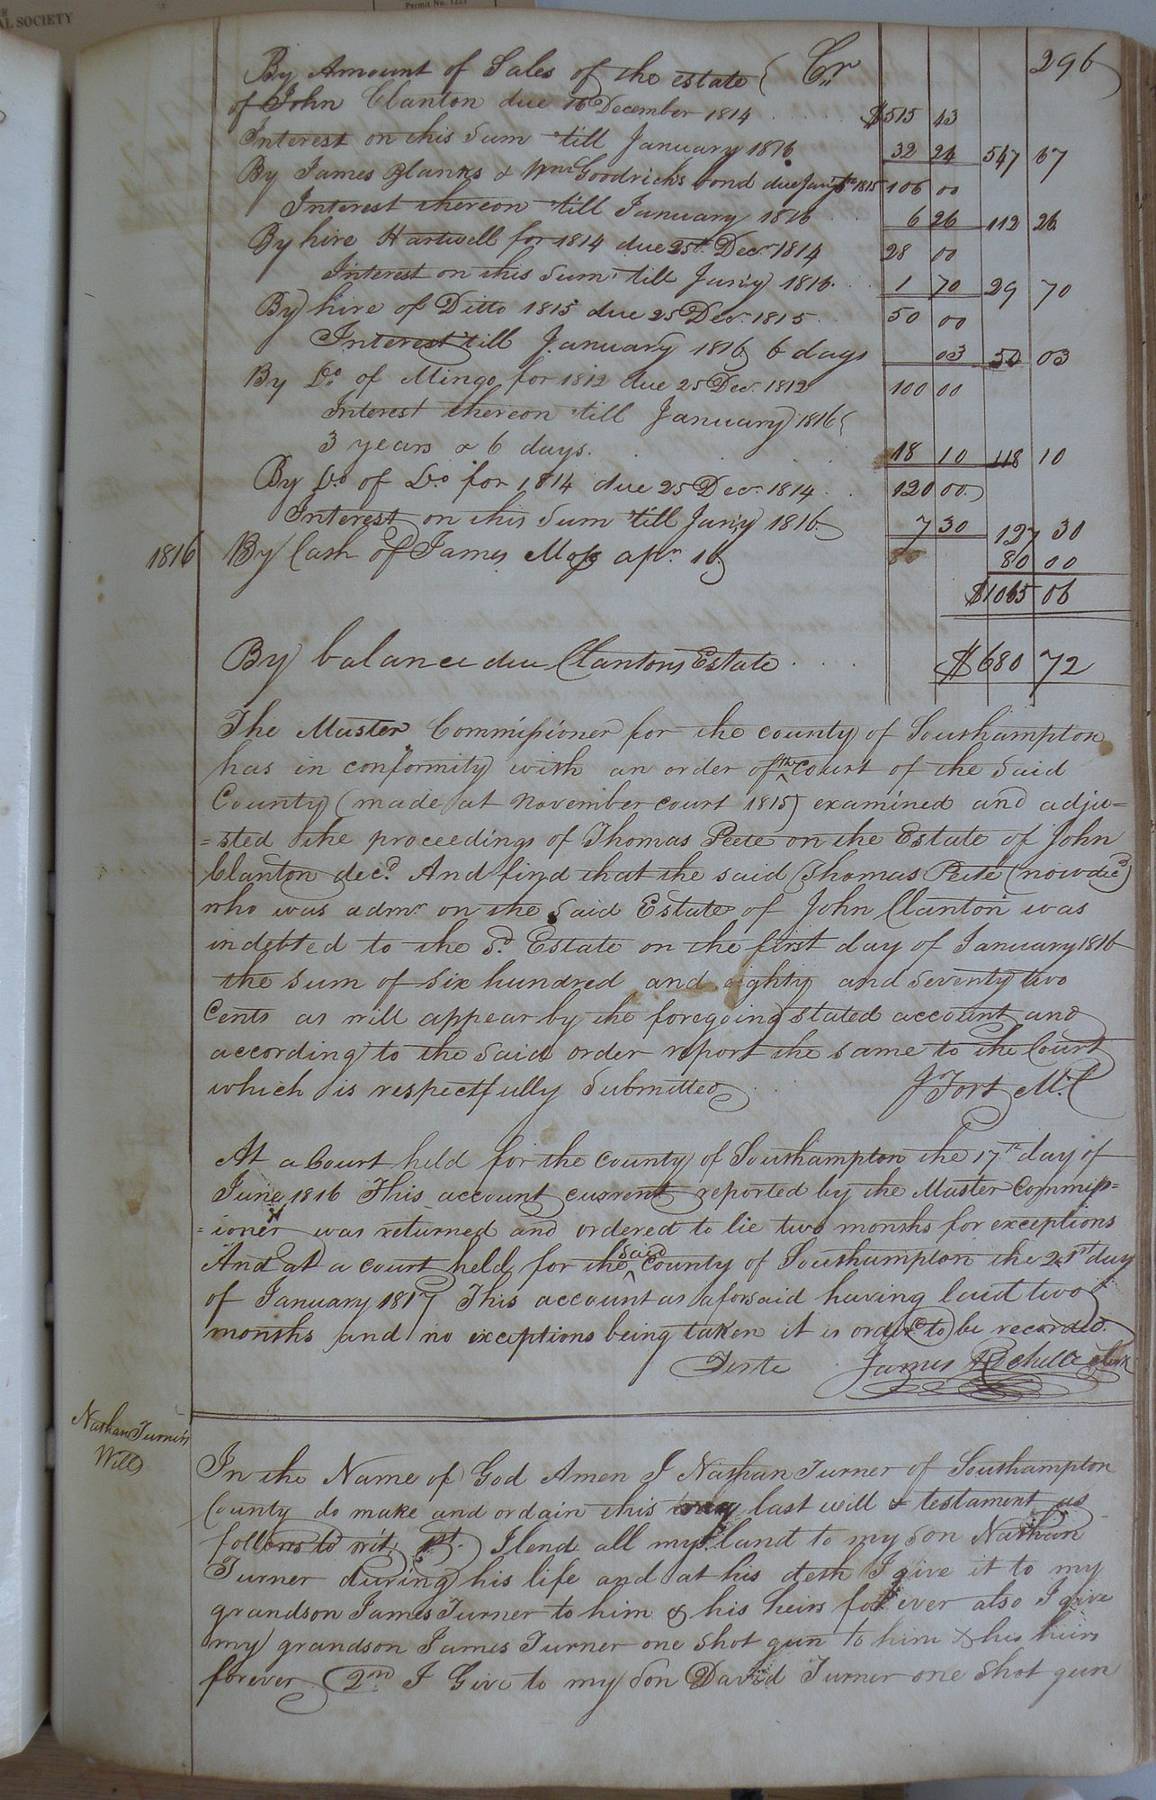 AL SOCIETY
Permit No. 1221
296
By Amount of Sales of the estate { Cr
of John Clanton due 16 December 1814 $515 43
Interest on this Sum till January 1816 32 24 547 67
By James Blanks & Wm Goodrichs bond due Jany 1815 106 00
Interest thereon till January 1816 6 26 112 26
By hire Hartwell for 1814 due 25t. Decr. 1814 28 00
Interest on this Sum till Jan'y 1816. 1 70 29 70
By hire of Ditto 1815 due 25 Decr. 1815 50 00
Interest till January 1816 6 days 03 50 03
By Do. of Mingo for 1812 due 25 Decr. 1812 100 00
Interest thereon till January 1816 {
3 years & 6 days. 18 10 118 10
By Do. of Do. for 1814 due 25 Decr. 1814 120 00
Interest on this Sum till Jan'y 1816 7 30 127 30
1816 By Cash of James Moss apr. 16 80 00
$1065 06
By balance due Clantons Estate $680 72
The Master Commissioner for the county of Southampton
has in conformity with an order of the Court of the Said
County (made at November court 1815) examined and adju=
=sted the proceedings of Thomas Peete on the Estate of John
Clanton decd. And find that the said Thomas Peete (now decd)
who was admr on the Said Estate of John Clanton was
indebted to the Sd. Estate on the first day of January 1816
the sum of six hundred and eighty and seventy two
Cents as will appear by the foregoing stated account and
according to the Said order report the same to the Court
which is respectfully Submitted J Fort M.C
At a Court held for the county of Southampton the 17th day of
June 1816 This account current reported by the Master Commiss=
=ioner was returned and ordered to lie two months for exceptions
And at a court held for the said County of Southampton the 21st day
of January 1817 This account as aforsaid having laid two
months and no exceptions being taken it is orded to be recorded.
Teste James Rochelle Clerk
Nathan Turner's
Will
In the Name of God Amen I Nathan Turner of Southampton
County do make and ordain this my last will & testament as
follows to wit, 1st. I lend all my land to my son Nathan
Turner during his life and at his deth I give it to my
grandson James Turner to him & his heirs for ever also I give
my grandson James Turner one Shot gun to him & his heirs
forever 2nd I Give to my Son David Turner one Shot gun